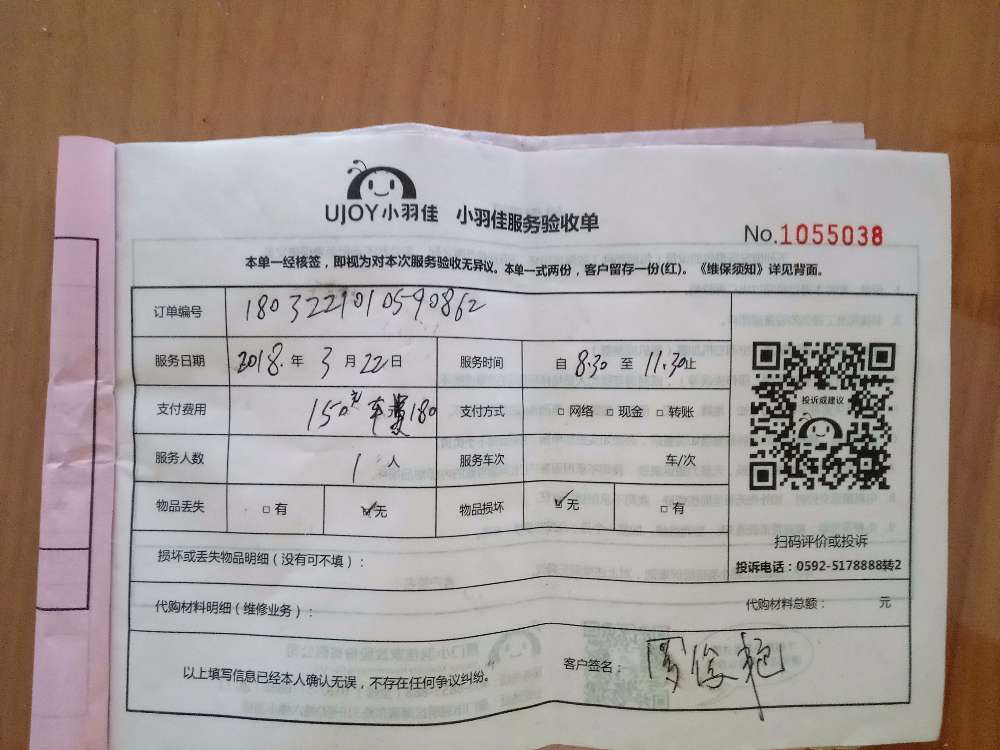 UJOY小羽佳 小羽佳服务验收单
No.1055038
本单一经核签，即视为对本次服务验收无异议。本单一式两份，客户留存一份(红)。《维保须知》详见背面。
订单编号 18032221010590862
服务日期 2018.年 3 月 22 日 服务时间 自 8.30 至 11.30 止
投诉或建议
支付费用 150元 车费180 支付方式 □网络 □现金 □转账
服务人数 1 人 服务车次 车/次
物品丢失 □有 ☑无 物品损坏 ☑无 □有
扫码评价或投诉
投诉电话：0592-5178888转2
损坏或丢失物品明细（没有可不填）：
代购材料明细（维修业务）： 代购材料总额： 元
以上填写信息已经本人确认无误，不存在任何争议纠纷。 客户签名：